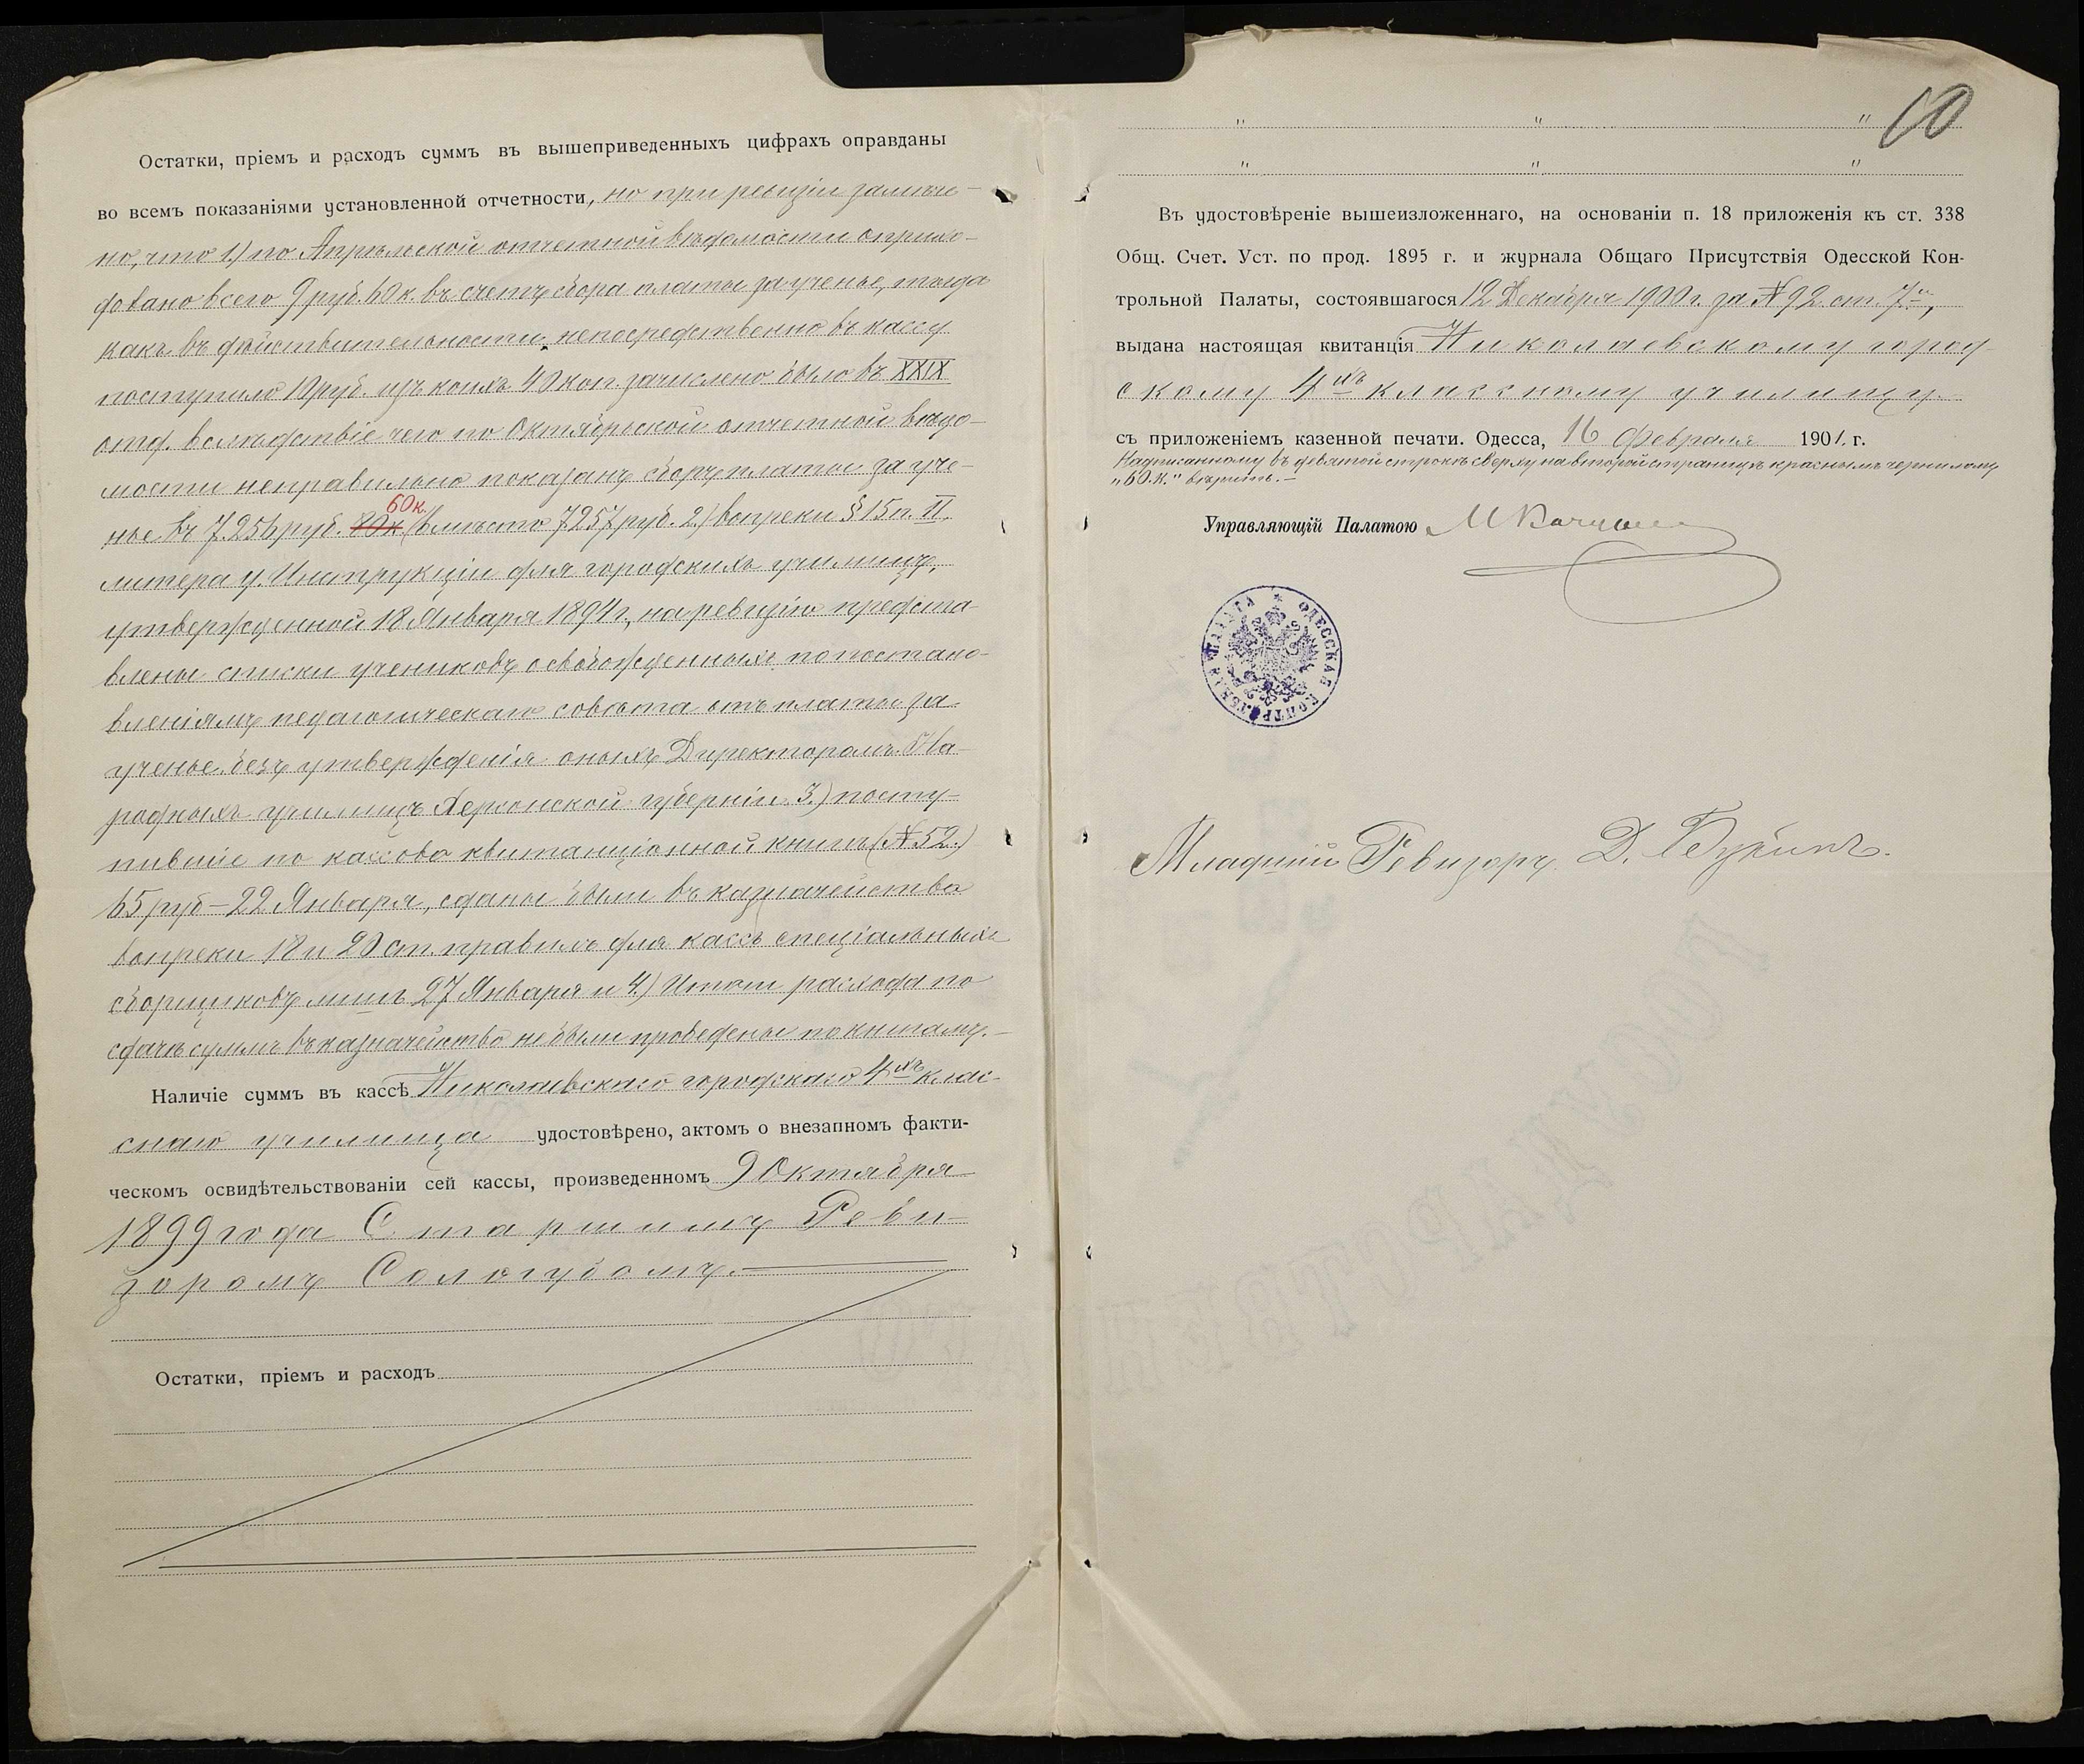 Остатки, пріемъ и расходъ суммъ въ вышеприведенныхъ цифрахъ оправданы
во всемъ показаніями установленной отчетности, но при ревизіи замѣче-
но, что 1.) по Апрѣльской отчетной вѣдомости оприхо-
довано всего 9 руб. 60 к. въ счетъ сбора платы за ученье, тогда
какъ въ дѣйствительности непосредственно въ кассу
поступило 10 руб. изъ коихъ 40 коп. зачислено было въ XXIX
отд. вслѣдствіе чего по Октябрьской отчетной вѣдо-
мости неправильно показанъ сборъ платы за уче-
60 к.
нье въ 7.256 руб. 80 к. (вмѣсто 7257 руб. 2.) вопреки § 15 п. II,
литера у. Инструкціи для городскихъ училищъ,
утвержденной 18 Января 1894 г., на ревизію предста-
влены списки учениковъ освобожденныхъ по постано-
вленіямъ педагогическаго совѣта отъ платы за
ученье безъ утвержденія оныхъ Директоромъ На-
родныхъ училищъ Херсонской губерніи 3.) посту-
пившіе по кассово квитанціонной книгѣ (№ 52.)
65 руб – 22 Января, сданы были въ казначейство
вопреки 18 и 20 ст. правилъ для кассъ спеціальныхъ
сборщиковъ лишь 27 Января и 4.) Итоги расхода по
сдачѣ суммъ въ казначейство не были проведены по книгамъ.
Наличіе суммъ въ кассѣ Николаевскаго городскаго 4хъ клас-
снаго училища удостовѣрено, актомъ о внезапномъ факти-
ческомъ освидѣтельствованіи сей кассы, произведенномъ 9 Октября
1899 года Старшимъ Реви-
зоромъ Сологубомъ.
Остатки, пріемъ и расходъ
60
" " "
" " "
Въ удостовѣреніе вышеизложеннаго, на основаніи п. 18 приложенія къ ст. 338
Общ. Счет. Уст. по прод. 1895 г. и журнала Общаго Присутствія Одесской Кон-
трольной Палаты, состоявшагося 12 Декабря 1900 г. за № 92 ст. 7й,
выдана настоящая квитанція Николаевскому город-
скому 4хъ классному училищу
съ приложеніемъ казенной печати. Одесса, 16 Февраля 1901 г.
Надписанному въ девятой строкѣ сверху на второй страницѣ красными чернилами
„60 к." вѣрить. –
Управляющій Палатою
ОДЕССКАЯ КОНТРОЛЬНАЯ ПАЛАТА
Младшій Ревизоръ Д.